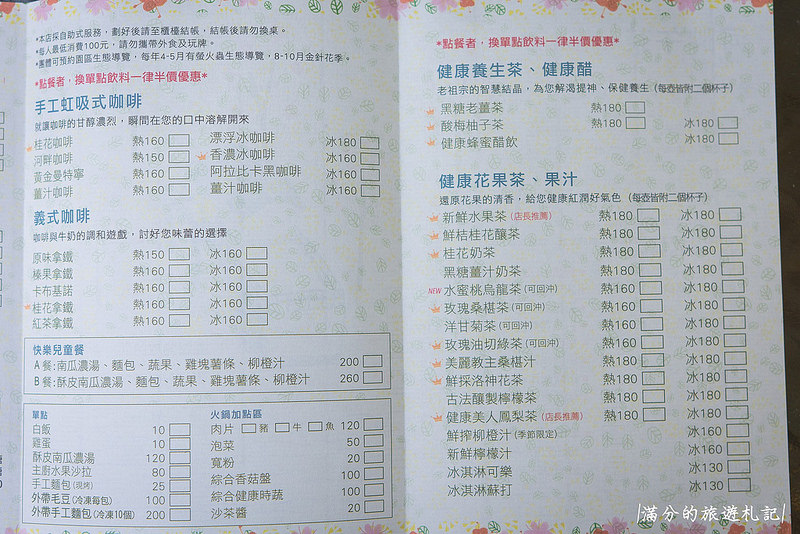 *本店採自助式服務，劃好後請至櫃檯結帳，結帳後請勿換桌。
*每人最低消費100元，請勿攜帶外食及玩牌。
*團體可預約園區生態導覽，每年4-5月有螢火蟲生態導覽，8-10月金針花季。
*點餐者，換單點飲料一律半價優惠*
手工虹吸式咖啡
就讓咖啡的甘醇濃烈，瞬間在您的口中溶解開來
桂花咖啡 熱160 漂浮冰咖啡 冰180
河畔咖啡 熱150 香濃冰咖啡 冰160
黃金曼特寧 熱160 阿拉比卡黑咖啡 冰160
薑汁咖啡 熱160 薑汁咖啡 冰160
義式咖啡
咖啡與牛奶的調和遊戲，討好您味蕾的選擇
原味拿鐵 熱150 冰160
榛果拿鐵 熱160 冰160
卡布基諾 熱160 冰160
桂花拿鐵 熱160 冰160
紅茶拿鐵 熱160 冰160
快樂兒童餐
A餐:南瓜濃湯、麵包、蔬果、雞塊薯條、柳橙汁 200
B餐:酥皮南瓜濃湯、麵包、蔬果、雞塊薯條、柳橙汁 260
單點
白飯 10
雞蛋 10
酥皮南瓜濃湯 120
主廚水果沙拉 80
手工麵包(現烤) 25
外帶毛豆(冷凍每包) 100
外帶手工麵包(冷凍10個) 200
火鍋加點區
肉片 豬 牛 魚 120
泡菜 50
寬粉 20
綜合香菇盤 100
綜合健康時蔬 100
沙茶醬 20
*點餐者，換單點飲料一律半價優惠*
健康養生茶、健康醋
老祖宗的智慧結晶，為您解渴提神、保健養生(每壺皆附二個杯子)
黑糖老薑茶 熱180
酸梅柚子茶 熱180 冰180
健康蜂蜜醋飲 冰180
健康花果茶、果汁
還原花果的清香，給您健康紅潤好氣色(每壺皆附二個杯子)
新鮮水果茶(店長推薦) 熱180 冰180
鮮桔桂花釀茶 熱180 冰180
桂花奶茶 熱180 冰180
黑糖薑汁奶茶 熱180 冰180
NEW 水蜜桃烏龍茶(可回沖) 熱180 冰180
玫瑰桑椹茶(可回沖) 熱160 冰180
洋甘菊茶(可回沖) 熱160 冰160
玫瑰油切綠茶(可回沖) 熱160 冰160
美麗教主桑椹汁 熱180 冰180
鮮採洛神花茶 熱180 冰180
古法釀製檸檬茶 熱180 冰180
健康美人鳳梨茶(店長推薦) 熱180 冰180
鮮搾柳橙汁(季節限定) 冰160
新鮮檸檬汁 冰160
冰淇淋可樂 冰130
冰淇淋蘇打 冰130
|滿分的旅遊札記|